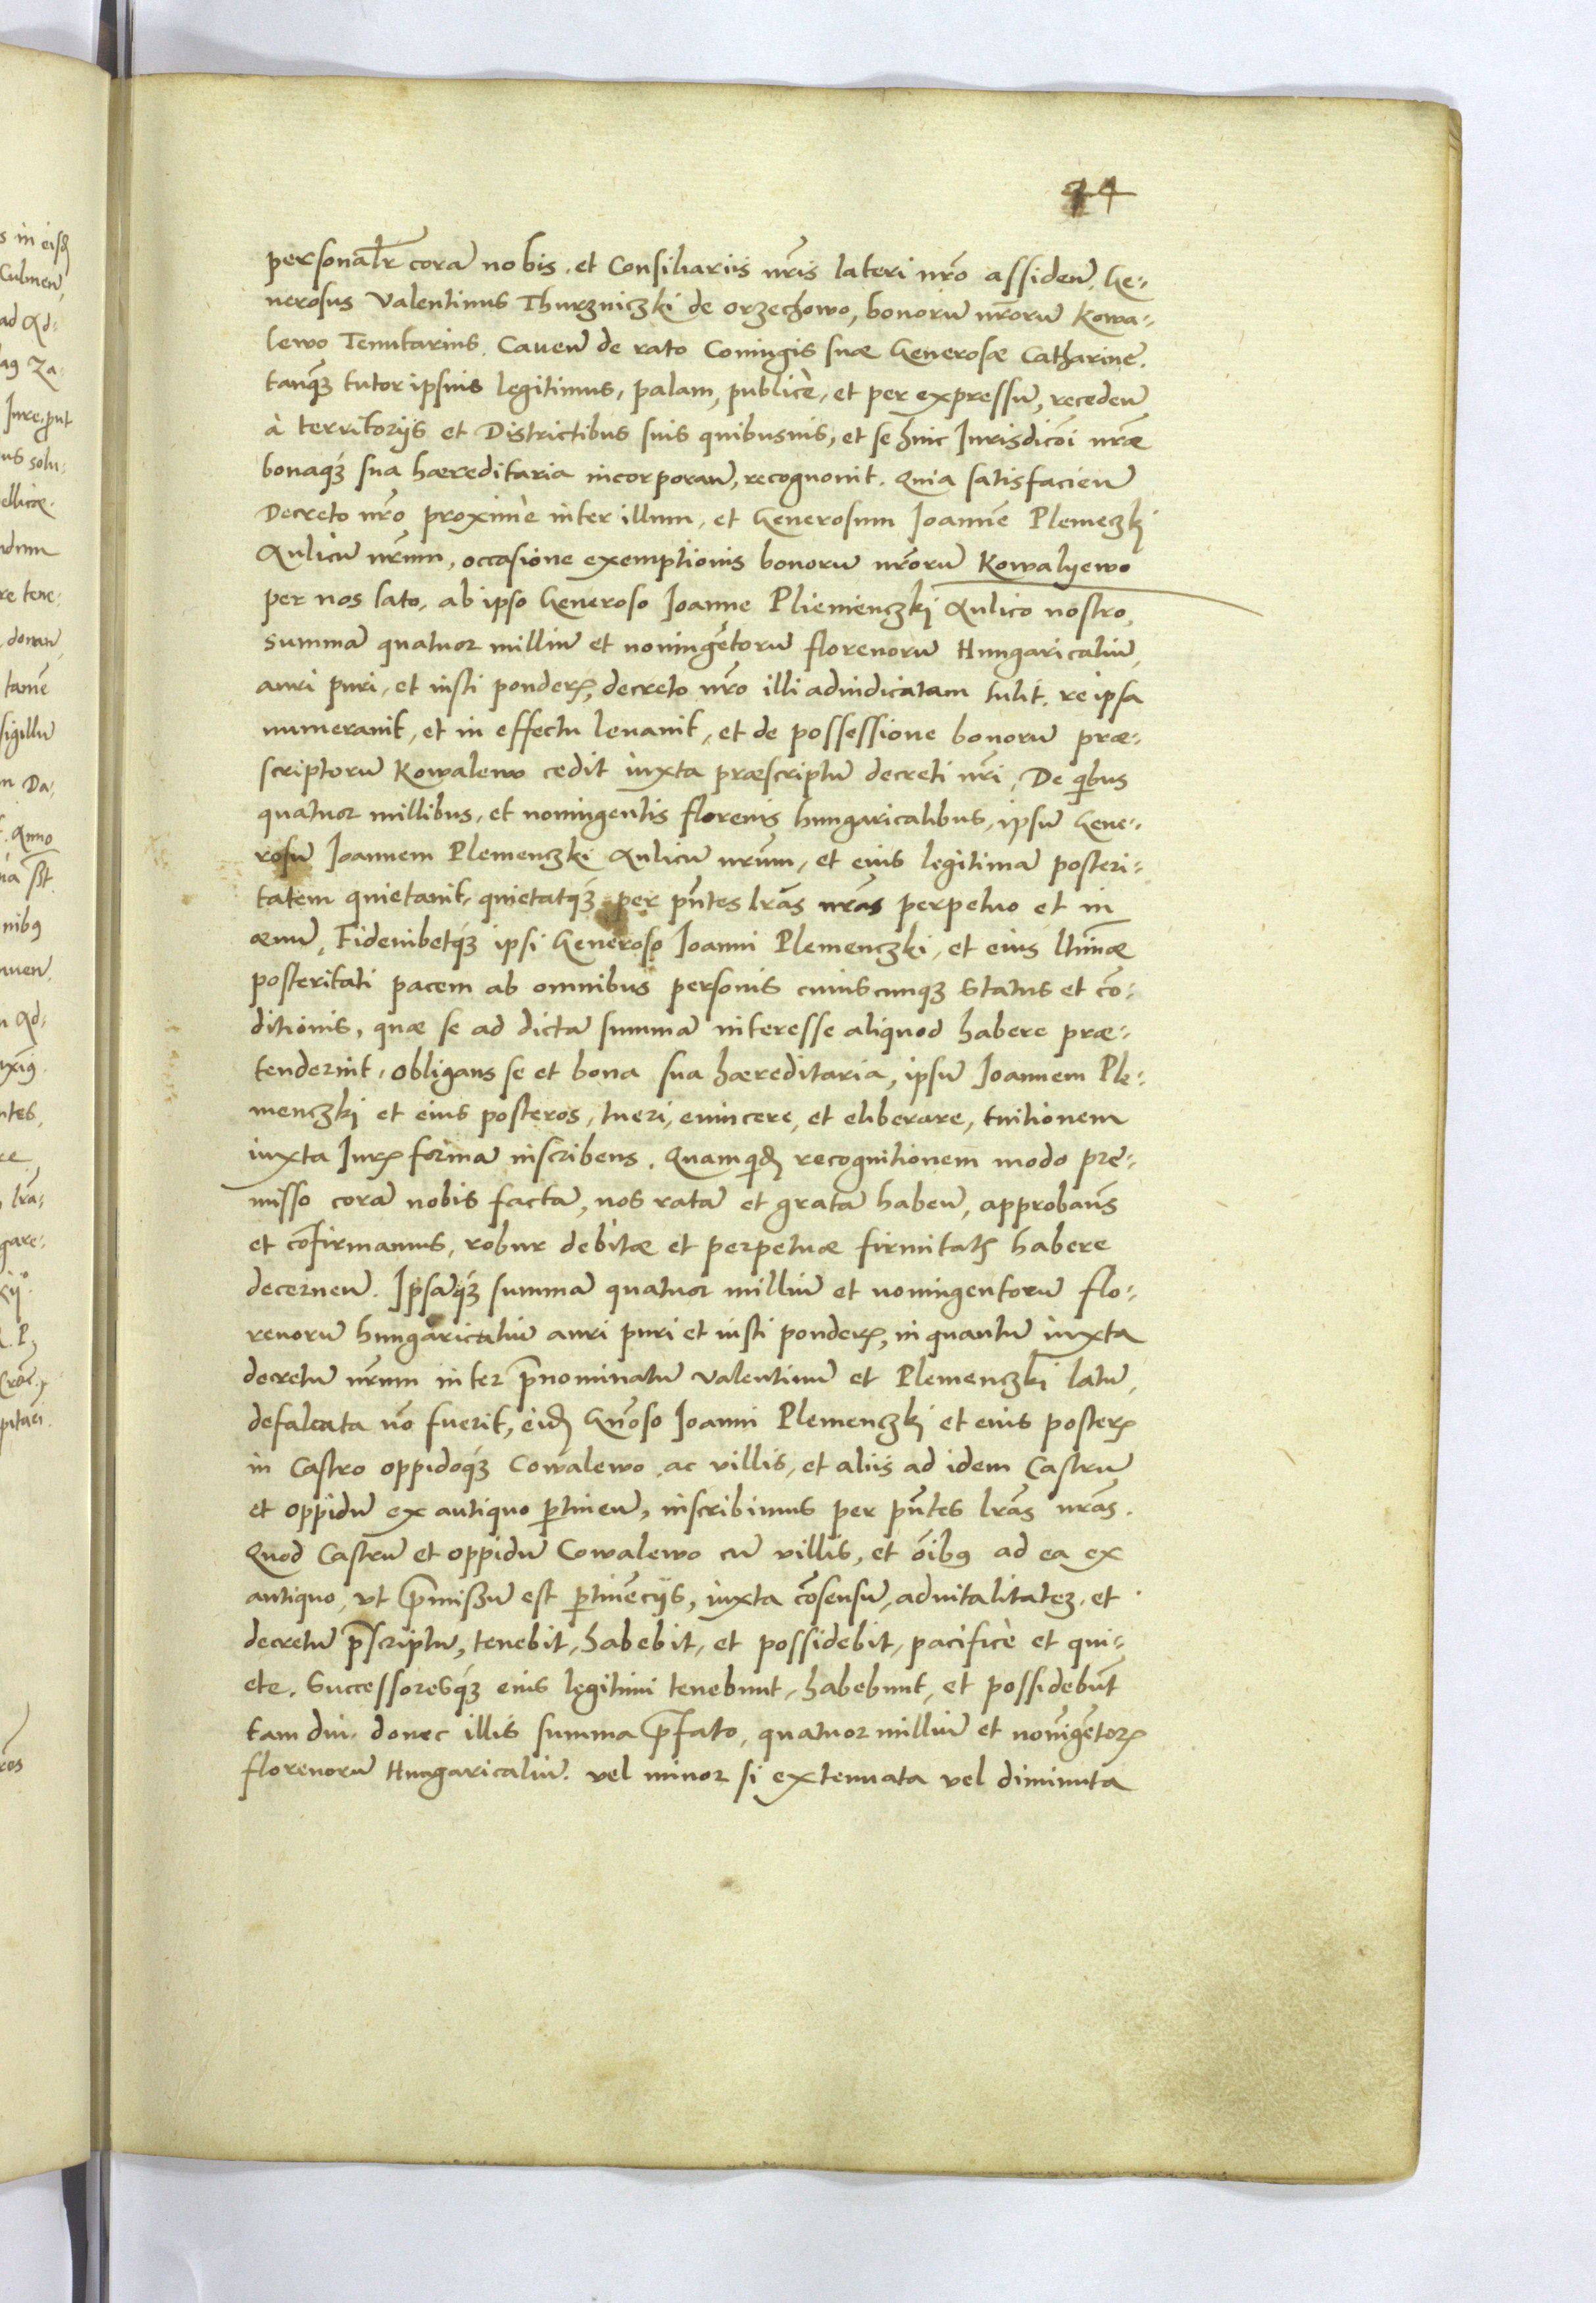 44
personalr̃ corā nobis, et Consiliariis nr̃is lateri nr̃o assideñ. Ge-
nerosus Valentinus Thurzniczki de Orzechowo, bonorū nr̃orū Kowa-
lewo Tenutarius. Caueñ de rato Coniugis suæ Generosæ Catharine.
tanq̃ꝫ tutor ipsius legitimus, palam, publicè, et per expressū, recedeñ
à territorijs et Districtibus suis quibusuis, et se huic Iurisdicōi nr̃æ
bonaq́ꝫ sua hæreditaria incorporañ, recognouit. Quia satisfacieñ
Decreto nr̃o proximè inter illum, et Generosum Joannē Plemeczkj
Aulicū nr̃um, occasione exemptionis bonorū nr̃orū Kowalyewo
per nos lato, ab ipso Generoso Joanne Pliemienczkj Aulico nostro,
summā quatuor milliū et noningētorū florenorū Hungaricaliū,
auri puri, et iusti ponderꝭ, decreto nr̃o illi adiudicatam tulit. re ipsa
numerauit, et in effectu leuauit, et de possessione bonorū præ-
scriptorū Kowalewo cedit iuxta præscriptū decreti nr̃i, De qͥbus
quatuor millibus, et noningentis florenis hungaricalibus, ipsū Gene-
rosū Joannem Plemenczki Aulicū nr̃um, et eius legitimā posteri-
tatem quietauit, quietatq́ꝫ per pñtes lrās nr̃as perpetuo et in
æuū, Fideiubetq́ꝫ ipsi Generoso Joanni Plemenczki, et eius ltimæ
posteritati pacem ab omnibus personis cuiuscunqꝫ status et cō-
ditionis, quæ se ad dictā summā interesse aliquod habere præ-
tenderint, obligans se et bona sua hæreditaria, ipsū Joannem Ple-
menczki et eius posteros, tueri, euincere, et eliberare, tuitionem
iuxta Jurꝭ formā inscribens. Quamqͥdē recognitionem modo præ-
misso corā nobis factā, nos ratā et gratā habeñ, approbam̃s
et cōfirmamus, robur debitæ et perpetuæ firmitatꝭ habere
decerneñ. Ipsāq́ꝫ summā quatuor milliū et noningentorū flo-
renorū hungaricaliū auri puri et iusti ponderꝭ, in quantū iuxta
decretū nr̃um inter p̄nominatū Valentinū et Plemenczki latū,
defalcata nō fuerit, eidē Gñoso Joanni Plemenczkj et eius posterꝭ
in Castro oppidoq́ꝫ Cowalewo, ac villis, et aliis ad idem Castrū
et oppidū ex antiquo ꝑtineñ, inscribimus per pñtes lrās nr̃as.
Quod Castrū et oppidū Cowalewo cū villis, et oībꝰ ad ea ex
antiquo, vt p̄missū est ꝑtinēcijs, iuxta cōsensū, aduitalitatē, et
decretū p̄scriptū, tenebit, habebit, et possidebit, pacificè et qui-
ete. Successoresq́ꝫ eius legitimi tenebunt, habebunt, et possidebūt
tam diu, donec illis summa p̄fato, quatuor milliū et nonīgētorꝭ
florenorū Hungaricaliū. vel minor si extenuata vel diminuta